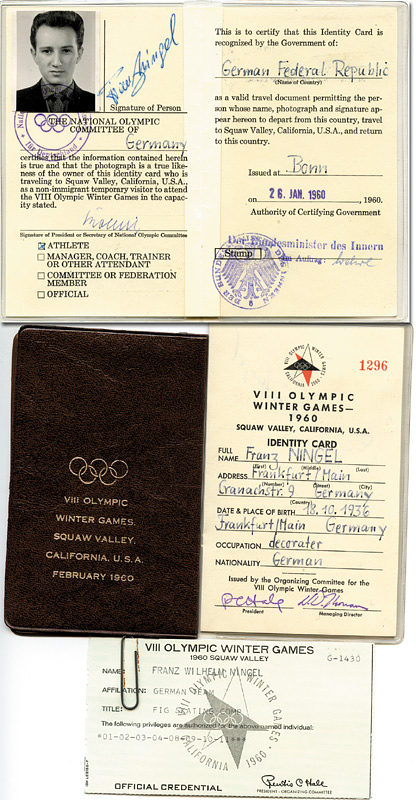 Franz Ningel
Signature of Person
THE NATIONAL OLYMPIC
COMMITTEE OF
Germany
certifies that the information contained herein
is true and that the photograph is a true like-
ness of the owner of this identity card who is
traveling to Squaw Valley, California, U.S.A.,
as a non-immigrant temporary visitor to attend
the VIII Olympic Winter Games in the capac-
ity stated.
Signature of President or Secretary of National Olympic Committee
ATHLETE
MANAGER, COACH, TRAINER
OR OTHER ATTENDANT
COMMITTEE OR FEDERATION
MEMBER
OFFICIAL
für Deutschland
This is to certify that this Identity Card is
recognized by the Government of:
German Federal Republic
(Name of Country)
as a valid travel document permitting the per-
son whose name, photograph and signature
appear hereon to depart from this country, travel
to Squaw Valley, California, U.S.A., and return
to this country.
Issued at Bonn
on 26. JAN. 1960, 1960.
Authority of Certifying Government
Der Bundesminister des Innern
Stamp
Im Auftrag:
VIII OLYMPIC
WINTER GAMES,
SQUAW VALLEY,
CALIFORNIA, U.S.A.
FEBRUARY 1960
OLYMPIC WINTER GAMES
CALIFORNIA 1960
1296
VIII OLYMPIC
WINTER GAMES—
1960
SQUAW VALLEY, CALIFORNIA, U.S.A.
IDENTITY CARD
FULL NAME Franz NINGEL
(First) (Middle) (Last)
ADDRESS Frankfurt/Main
(Number) (Street) (City)
Cranachstr. 9 Germany
(Country)
DATE & PLACE OF BIRTH 18.10.1936
Frankfurt/Main Germany
OCCUPATION decorater
NATIONALITY German
Issued by the Organizing Committee for the
VIII Olympic Winter Games
President Managing Director
VIII OLYMPIC WINTER GAMES
1960 SQUAW VALLEY G-1430
NAME: FRANZ WILHELM NINGEL
AFFILIATION: GERMAN TEAM
TITLE: FIG SKATING COMP
The following privileges are authorized for the above named individual:
*01-02-03-04-08-09-10-11***
OLYMPIC WINTER GAMES
CALIFORNIA 1960
OFFICIAL CREDENTIAL
Prentis C Hale
PRESIDENT - ORGANIZING COMMITTEE